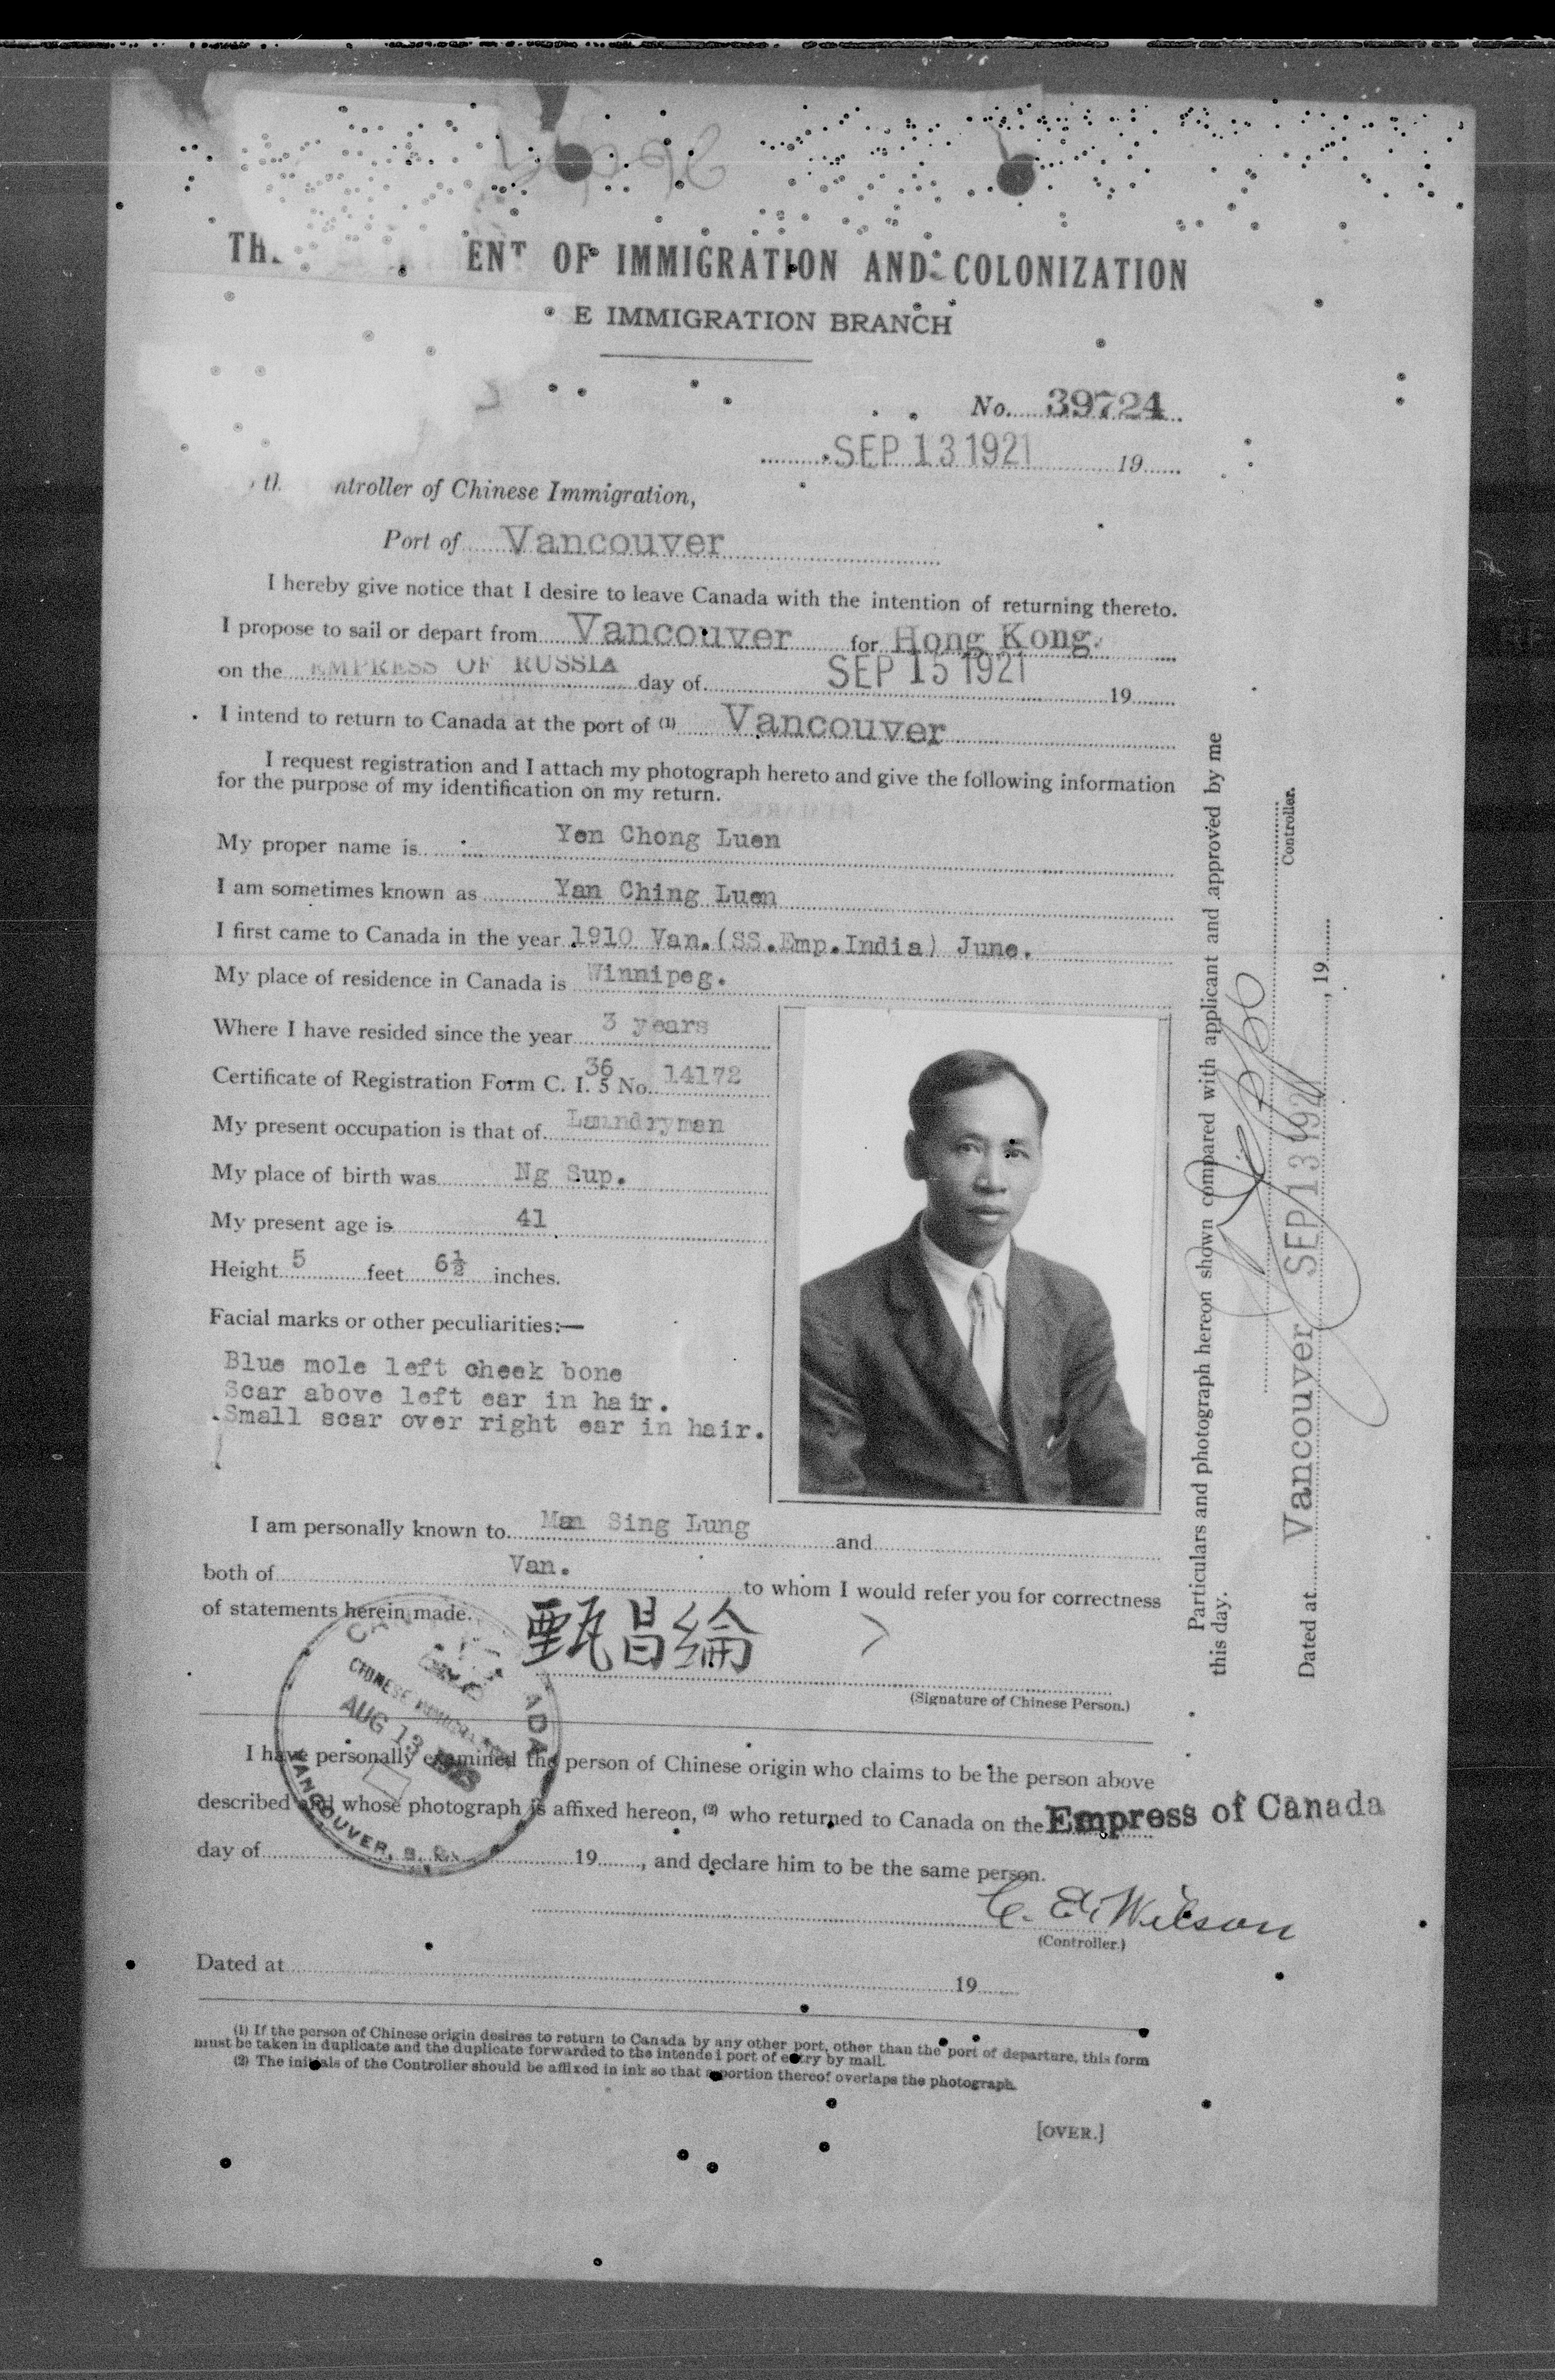 ENT OF IMMIGRATION AND COLONIZATION
E IMMIGRATION BRANCH
No. 39724
SEP 13 1921 19
ntroller of Chinese Immigration,
Port of Vancouver
I hereby give notice that I desire to leave Canada with the intention of returning thereto.
I propose to sail or depart from Vancouver for Hong Kong.
on the EMPRESS OF RUSSIA day of SEP 15 1921 19
I intend to return to Canada at the port of (1) Vancouver
I request registration and I attach my photograph hereto and give the following information
for the purpose of my identification on my return.
My proper name is Yen Chong Luen
I am sometimes known as Yan Ching Luen
I first came to Canada in the year 1910 Van.(SS.Emp.India) June.
My place of residence in Canada is Winnipeg.
Where I have resided since the year 3 years
36
Certificate of Registration Form C. I. 5 No. 14172
My present occupation is that of Laundryman
My place of birth was Ng Sup.
My present age is 41
Height 5 feet 6½ inches.
Facial marks or other peculiarities:—
Blue mole left cheek bone
Scar above left ear in hair.
Small scar over right ear in hair.
I am personally known to Man Sing Lung and
both of Van. to whom I would refer you for correctness
of statements herein made.
甄昌綸
(Signature of Chinese Person.)
I have personally examined the person of Chinese origin who claims to be the person above
described and whose photograph is affixed hereon, (2) who returned to Canada on the Empress of Canada
day of 19 , and declare him to be the same person.
C. E. Wilson
(Controller.)
Dated at 19
(1) If the person of Chinese origin desires to return to Canada by any other port, other than the port of departure, this form
must be taken in duplicate and the duplicate forwarded to the intended port of entry by mail.
(2) The initials of the Controller should be affixed in ink so that a portion thereof overlaps the photograph.
[OVER.]
CHINESE IMMIGRATION
AUG 13
VANCOUVER, B. C.
Particulars and photograph hereon shown compared with applicant and approved by me
this day.
Controller.
Dated at Vancouver SEP 13 1921 , 19